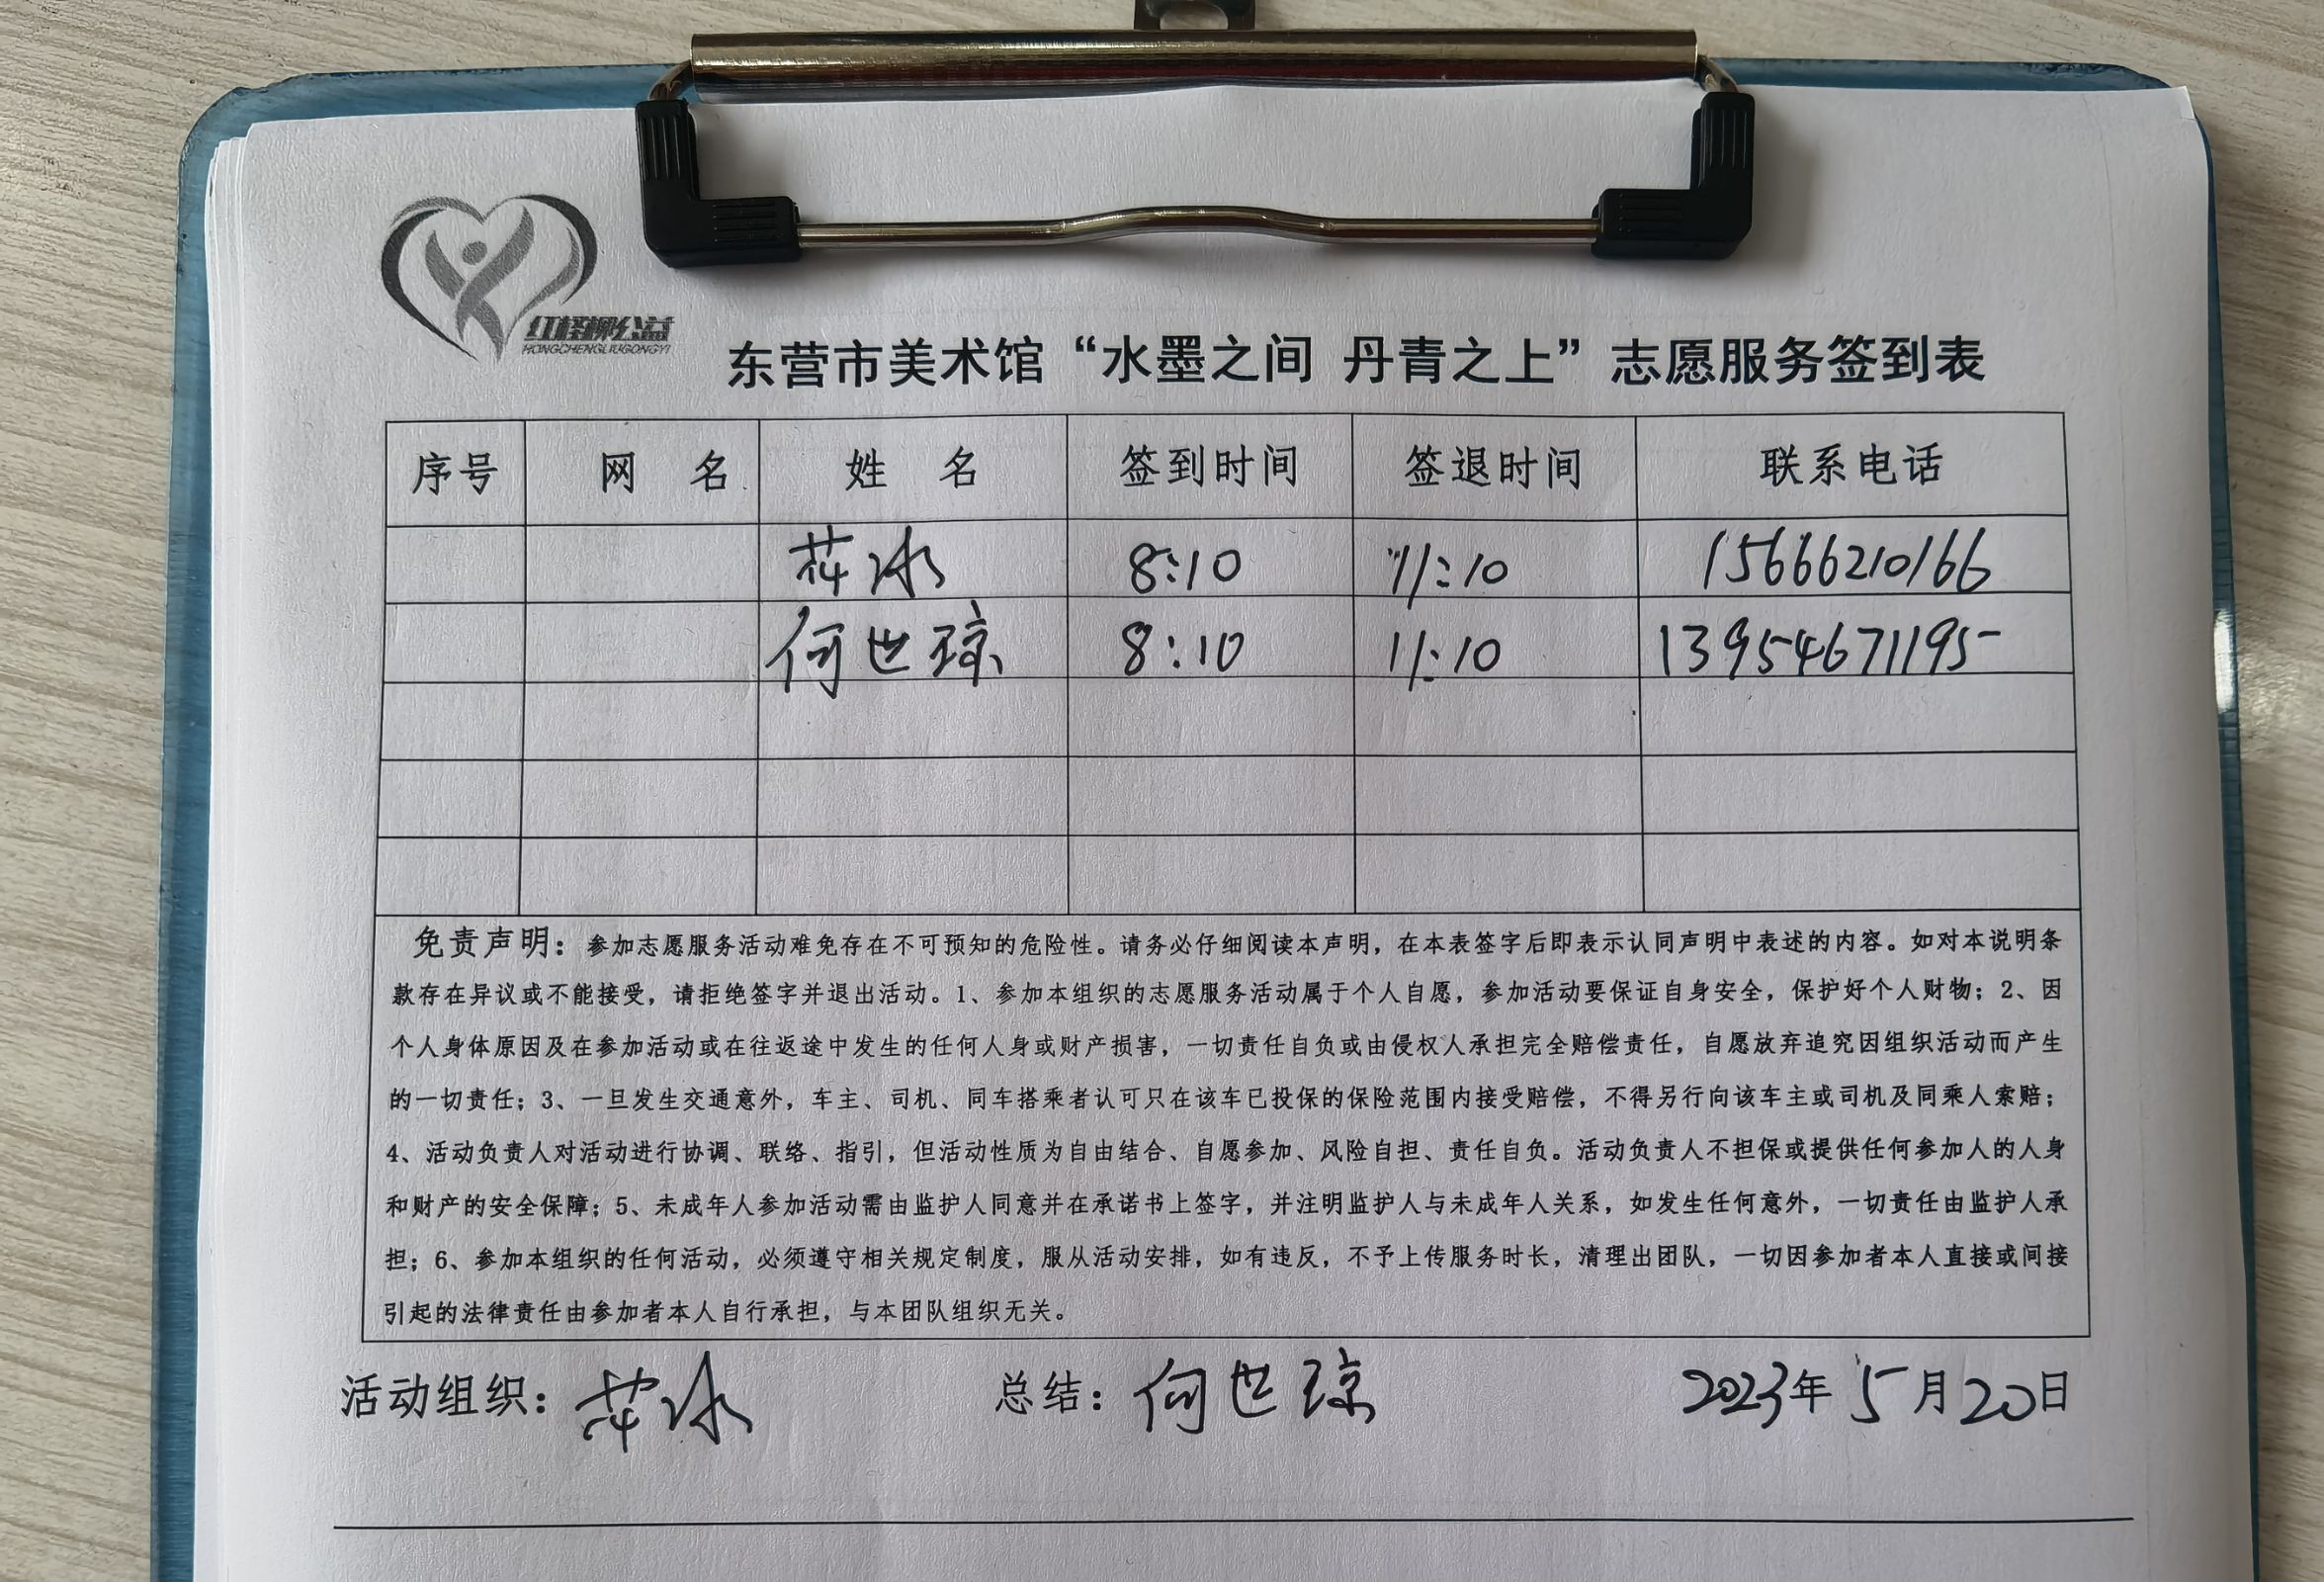 红柽柳公益
HONGCHENGLIUGONGYI
东营市美术馆“水墨之间 丹青之上”志愿服务签到表
序号 网 名 姓 名 签到时间 签退时间 联系电话
冰 8:10 11:10 15666210166
何世琼 8:10 11:10 13954671195
免责声明：参加志愿服务活动难免存在不可预知的危险性。请务必仔细阅读本声明，在本表签字后即表示认同声明中表述的内容。如对本说明条
款存在异议或不能接受，请拒绝签字并退出活动。1、参加本组织的志愿服务活动属于个人自愿，参加活动要保证自身安全，保护好个人财物；2、因
个人身体原因及在参加活动或在往返途中发生的任何人身或财产损害，一切责任自负或由侵权人承担完全赔偿责任，自愿放弃追究因组织活动而产生
的一切责任；3、一旦发生交通意外，车主、司机、同车搭乘者认可只在该车已投保的保险范围内接受赔偿，不得另行向该车主或司机及同乘人索赔；
4、活动负责人对活动进行协调、联络、指引，但活动性质为自由结合、自愿参加、风险自担、责任自负。活动负责人不担保或提供任何参加人的人身
和财产的安全保障；5、未成年人参加活动需由监护人同意并在承诺书上签字，并注明监护人与未成年人关系，如发生任何意外，一切责任由监护人承
担；6、参加本组织的任何活动，必须遵守相关规定制度，服从活动安排，如有违反，不予上传服务时长，清理出团队，一切因参加者本人直接或间接
引起的法律责任由参加者本人自行承担，与本团队组织无关。
活动组织：冰 总结：何世琼 2023年5月20日